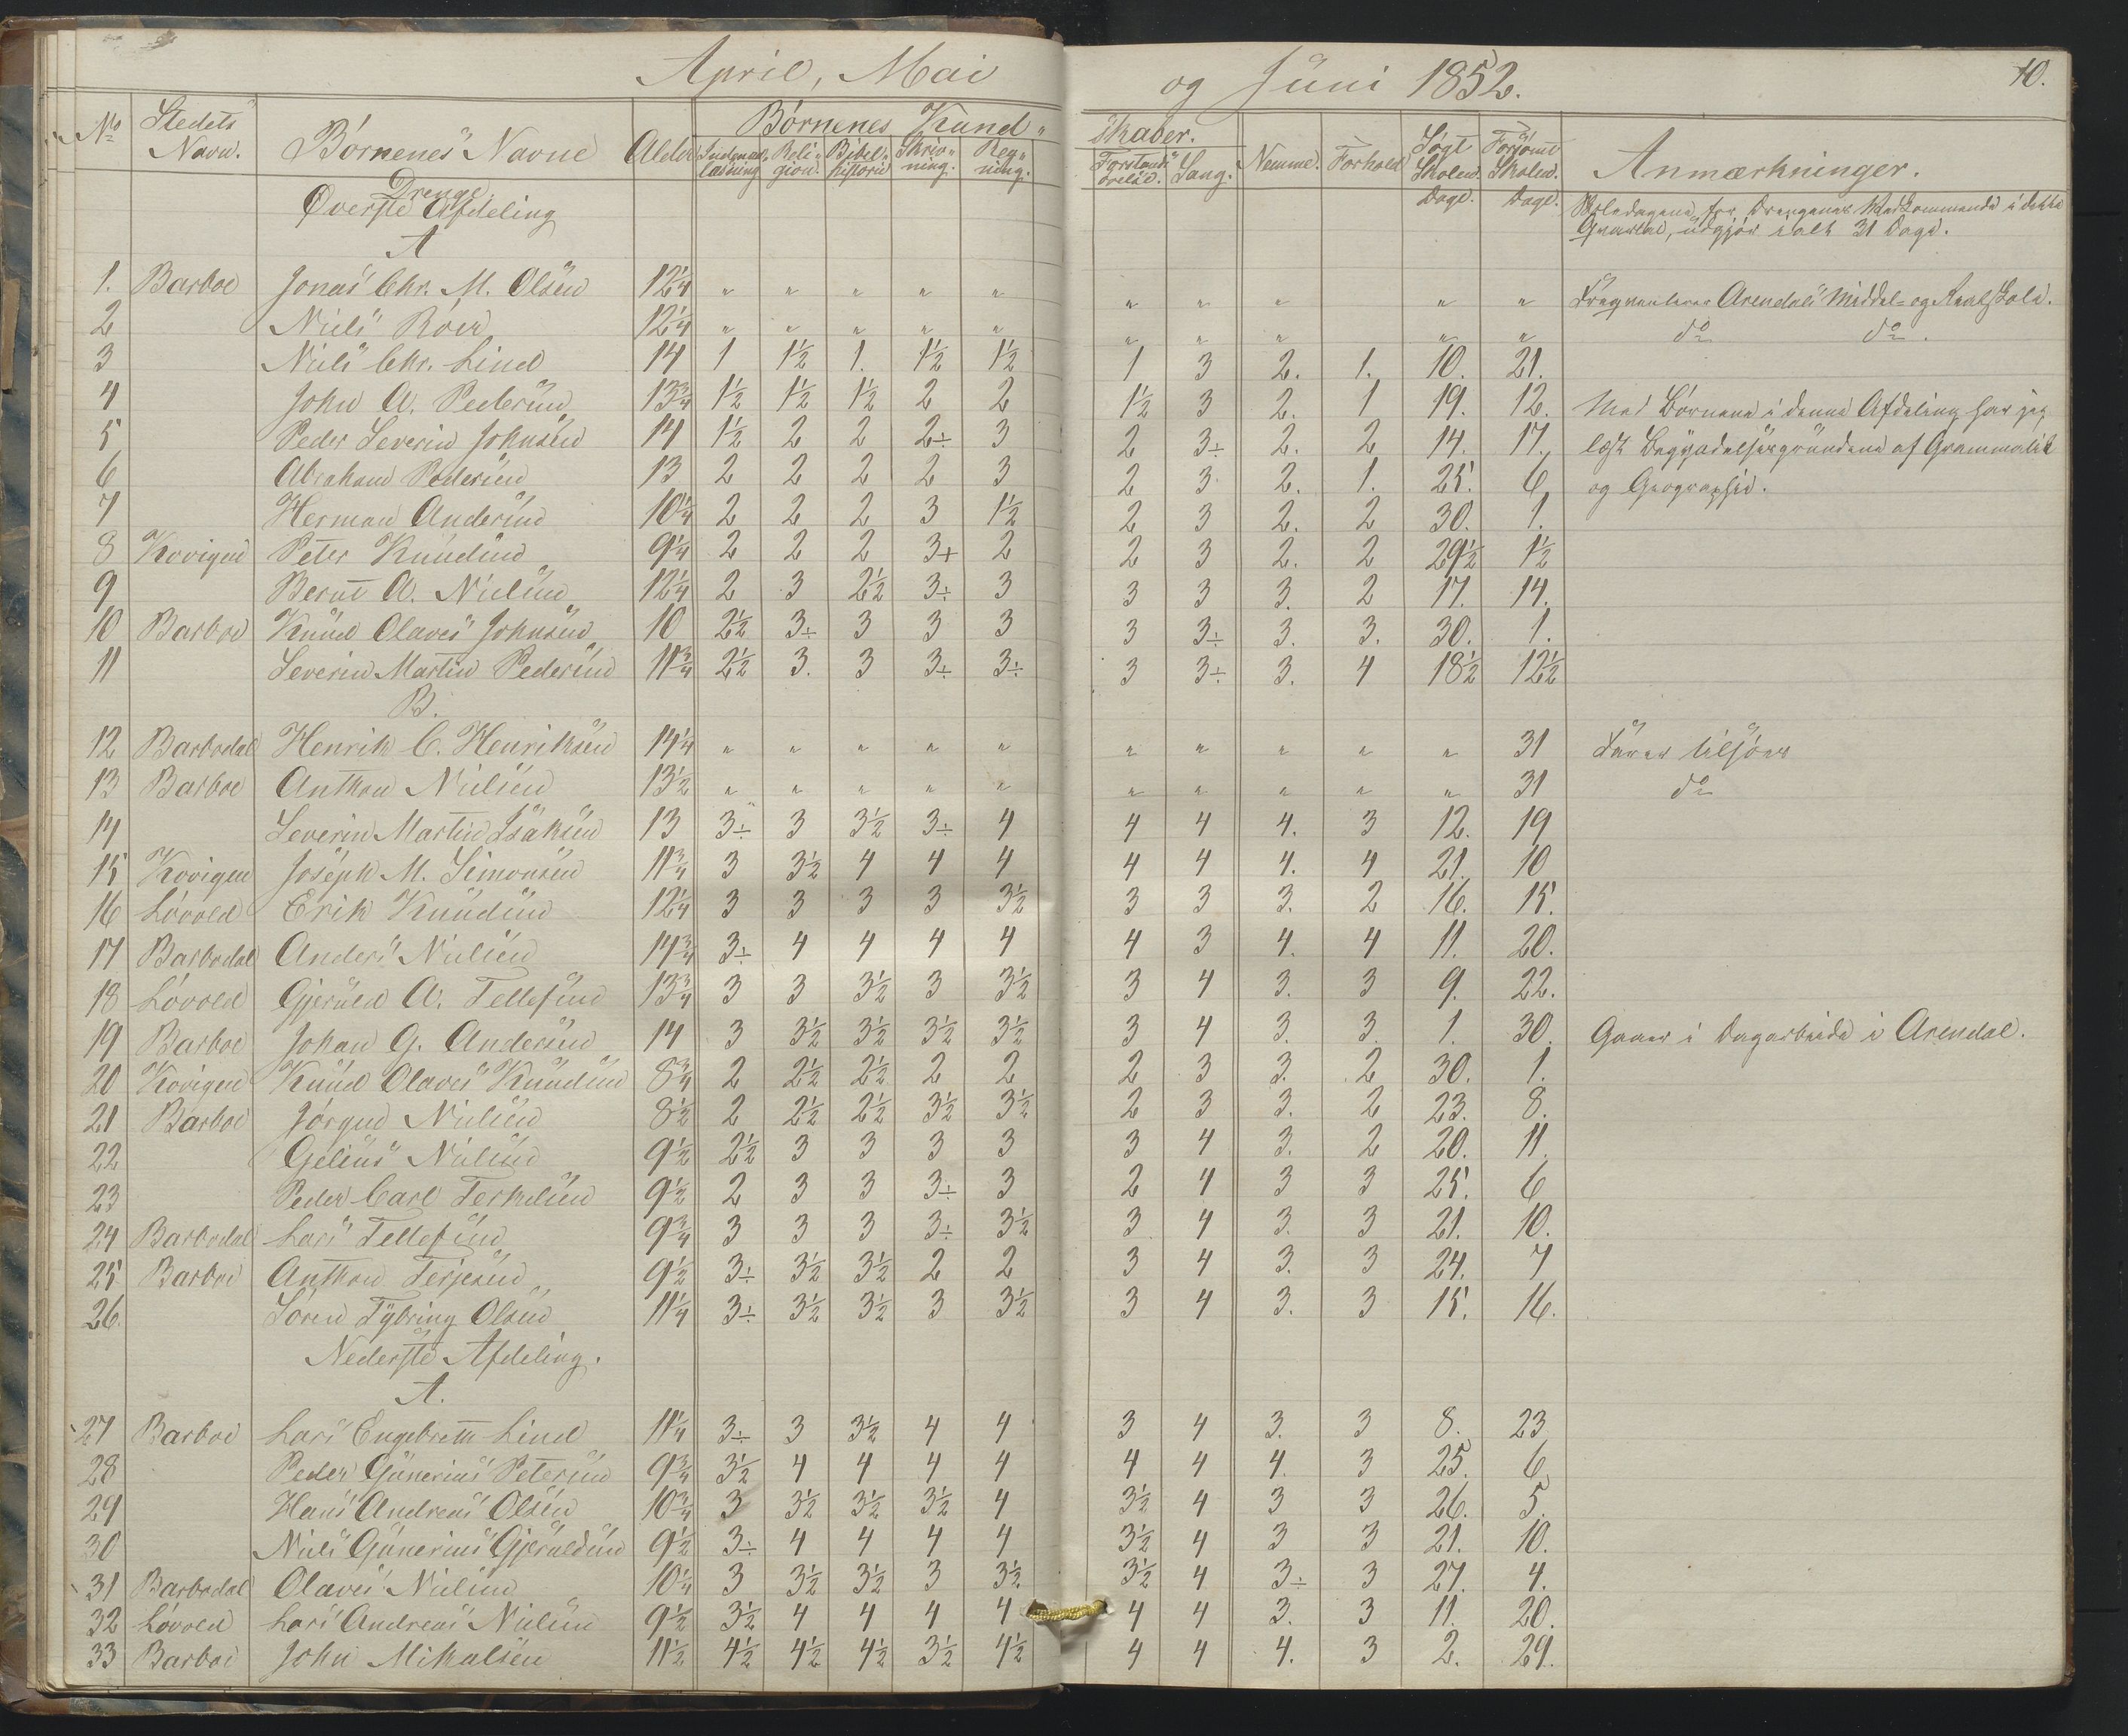 April, Mai og Juni 1852. 10.
No Stedets Navn. Børnenes Navne Alder Børnenes Kund- skaber. Nemme. Forhold Søgt Skolen. Dage. Forsømt Skolen. Dage. Anmærkninger.
Indenadlæsning Religion. Bibelhistorie Skrivning. Regning. Forstandsøvelse. Sang.
Drenge
Øverste Afdeling
A
Skoledagene for Drengenes Vedkommende i dette
Qvartal, udgjør i alt 31 Dage.
1. Barboe Jonas Chr. M. Olsen 12¼ " " " " " " " " " " Freqventerer Arendals Middel- og Realskole.
2 Niels Röer 12¼ " " " " " " " " " " do do.
3 Niels Chr. Lind 14 1 1½ 1. 1½ 1½ 1 3 2. 1. 10. 21.
4 John A. Pedersen 13¾ 1½ 1½ 1½ 2 2 1½ 3 2. 1 19. 12. Med Börnene i denne Afdeling har jeg
5 Peder Severin Johnsen 14 1½ 2 2 2÷ 3 2 3÷ 2. 2 14. 17. læst Begyndelsesgrundene af Grammatik
6 Abraham Pedersen 13 2 2 2 2 3 2 3 2. 1. 25. 6 og Geographie.
7 Herman Andersen 10¼ 2 2 2 3 1½ 2 3 2. 2 30. 1.
8 Kovigen Peter Knudsen 9¼ 2 2 2 3+ 2 2 3 2. 2 29½ 1½
9 Bernt A. Nielsen 12¼ 2 3 2½ 3÷ 3 3 3 3. 2 17. 14.
10 Barboe Knud Olaves Johnsen 10 2½ 3÷ 3 3 3 3 3÷ 3. 3. 30. 1.
11 Severin Martin Pedersen 11¾ 2½ 3. 3 3÷ 3÷ 3 3÷ 3. 4 18½ 12½
B.
12 Barbodal Henrik C. Henriksen 14¼ " " " " " " " " " " 31 Farer tilsjöes
13 Barboe Anthon Nielsen 13½ " " " " " " " " " " 31 do
14 Severin Martin Isaksen 13 3÷ 3 3½ 3÷ 4 4 4 4. 3 12. 19
15 Kovigen Joseph M. Simonsen 11¾ 3 3½ 4 4 4 4 4 4. 4 21. 10
16 Lövold Erik Knudsen 12¼ 3 3 3 3 3½ 3 3 3. 2 16. 15.
17 Barbodal Anders Nielsen 14¾ 3÷ 4 4 4 4 4 3 4. 4 11. 20.
18 Lövold Gjeruld A. Tellefsen 13¾ 3 3 3½ 3 3½ 3 4 3. 3 9. 22.
19 Barboe Johan G. Andersen 14 3 3½ 3½ 3½ 3½ 3 4 3. 3. 1. 30. Gaaer i Dagarbeide i Arendal.
20 Kovigen Knud Olaves Knudsen 8¾ 2 2½ 2½ 2 2 2 3 3. 2 30. 1.
21 Barboe Jörgen Nielsen 8½ 2 2½ 2½ 3½ 3½ 2 3 3. 2 23. 8.
22 Gelius Nielsen 9½ 2½ 3 3 3 3 3 4 3. 2 20. 11.
23 Peder Carl Terkelsen 9½ 2 3 3 3÷ 3 2 4 3 3 25. 6
24 Barbodal Lars Tellefsen 9¾ 3 3 3 3÷ 3½ 3 4 3. 3 21. 10.
25 Barboe Anthon Terjesen 9½ 3÷ 3½ 3½ 2 2 3 4 3. 3 24. 7
26. Sören Tybring Olsen 11¼ 3÷ 3½ 3½ 3 3½ 3 4 3. 3 15. 16.
Nederste Afdeling.
A.
27 Barboe Lars Engebreth Lind 11¼ 3÷ 3 3½ 4 4 3 4 3. 3 8. 23
28 Peder Gunerius Petersen 9¾ 3½ 4 4 4 4 4 4 4. 3 25. 6
29 Hans Andreas Olsen 10¾ 3 3½ 3½ 3½ 4 3½ 4 3 3 26. 5.
30 Niels Gunerius Gjeruldsen 9½ 3÷ 4 4 4 4 3½ 4 3 3 21. 10.
31 Barbodal Olaves Nielsen 10¼ 3 3½ 3½ 3 3½ 3½ 4 3÷ 3 27. 4.
32 Lövold Lars Andreas Nielsen 9½ 3½ 4 4 4 4 4 4 3. 3 11. 20.
33 Barboe John Mikalsen 11½ 4½ 4½ 4½ 3½ 4½ 4 4 4. 3 2. 29.